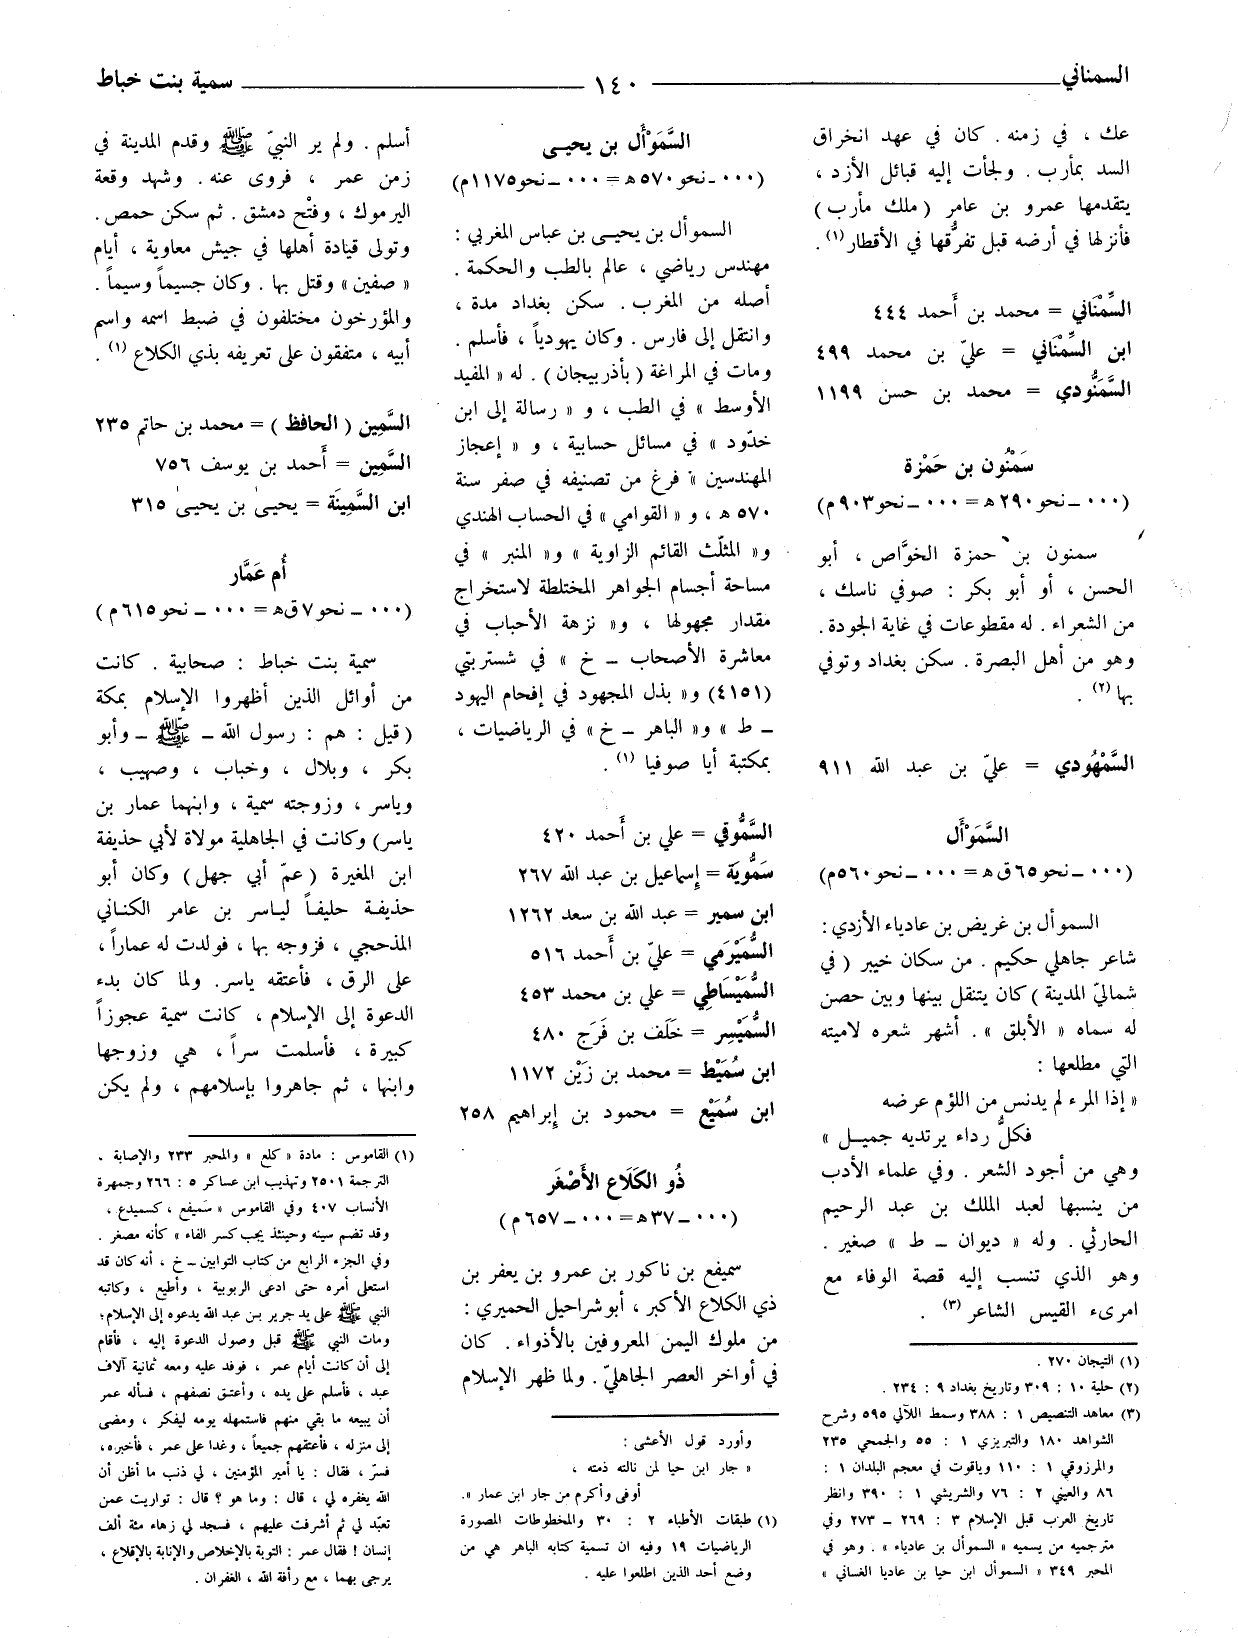 السمناني ١٤٠ سمية بنت خباط
عك ، في زمنه . كان في عهد انخراق
السد بمأرب . ولجأت إليه قبائل الأزد ،
يتقدمها عمرو بن عامر ( ملك مأرب )
فأنزلها في أرضه قبل تفرُّقها في الأقطار (١) .
السِّمْناني = محمد بن أَحمد ٤٤٤
ابن السِّمْناني = عليّ بن محمد ٤٩٩
السَّمَنُّودي = محمد بن حسن ١١٩٩
سَمْنُون بن حَمْزة
(٠٠٠ ـ نحو ٢٩٠ ه = ٠٠٠ ـ نحو ٩٠٣ م)
سمنون بن حمزة الخوَّاص ، أبو
الحسن ، أو أبو بكر : صوفي ناسك ،
من الشعراء . له مقطوعات في غاية الجودة .
وهو من أهل البصرة . سكن بغداد وتوفي
بها (٢) .
السَّمْهُودي = عليّ بن عبد الله ٩١١
السَّمَوْأَل
(٠٠٠ ـ نحو ٦٥ ق ه = ٠٠٠ ـ نحو ٥٦٠ م)
السموأل بن غريض بن عادياء الأزدي :
شاعر جاهلي حكيم . من سكان خيبر ( في
شماليّ المدينة ) كان يتنقل بينها وبين حصن
له سماه « الأبلق » . أشهر شعره لاميته
التي مطلعها :
« إذا المرء لم يدنس من اللؤم عرضه
فكلُّ رداء يرتديه جميل »
وهي من أجود الشعر . وفي علماء الأدب
من ينسبها لعبد الملك بن عبد الرحيم
الحارثي . وله « ديوان ـ ط » صغير .
وهو الذي تنسب إليه قصة الوفاء مع
امرىء القيس الشاعر (٣) .
(١) التيجان ٢٧٠ .
(٢) حلية ١٠ : ٣٠٩ وتاريخ بغداد ٩ : ٢٣٤ .
(٣) معاهد التنصيص ١ : ٣٨٨ وسمط اللآلي ٥٩٥ وشرح
الشواهد ١٨٠ والتبريزي ١ : ٥٥ والجمحي ٢٣٥
والمرزوقي ١ : ١١٠ وياقوت في معجم البلدان ١ :
٨٦ والعيني ٢ : ٧٦ والشريشي ١ : ٣٩٠ وانظر
تاريخ العرب قبل الإسلام ٣ : ٢٦٩ ـ ٢٧٣ وفي
مترجميه من يسميه « السموأل بن عادياء » . وهو في
المحبر ٣٤٩ « السموأل ابن حيا بن عاديا الغساني »
السَّمَوْأَل بن يحيى
(٠٠٠ ـ نحو ٥٧٠ ه = ٠٠٠ ـ نحو ١١٧٥ م)
السموأل بن يحيى بن عباس المغربي :
مهندس رياضي ، عالم بالطب والحكمة .
أصله من المغرب . سكن بغداد مدة ،
وانتقل إلى فارس . وكان يهودياً ، فأسلم .
ومات في المراغة ( بأذربيجان ) . له « المفيد
الأوسط » في الطب ، و « رسالة إلى ابن
خدّود » في مسائل حسابية ، و « إعجاز
المهندسين » فرغ من تصنيفه في صفر سنة
٥٧٠ ه ، و « القوامي » في الحساب الهندي
و« المثلّث القائم الزاوية » و« المنبر » في
مساحة أجسام الجواهر المختلطة لاستخراج
مقدار مجهولها ، و« نزهة الأحباب في
معاشرة الأصحاب ـ خ » في شستربتي
(٤١٥١) و« بذل المجهود في إفحام اليهود
ـ ط » و« الباهر ـ خ » في الرياضيات ،
بمكتبة أيا صوفيا (١) .
السَّمُّوقي = علي بن أَحمد ٤٢٠
سَمُّوية = إسماعيل بن عبد الله ٢٦٧
ابن سمير = عبد الله بن سعد ١٢٦٢
السُّمَيْرَمي = عليّ بن أَحمد ٥١٦
السُّمَيْسَاطِي = علي بن محمد ٤٥٣
السُّمَيْسِر = خَلَف بن فَرَج ٤٨٠
ابن سُمَيْط = محمد بن زَيْن ١١٧٢
ابن سُمَيْع = محمود بن إبراهيم ٢٥٨
ذُو الكَلَاع الأَصْغَر
(٠٠٠ ـ ٣٧ ه = ٠٠٠ ـ ٦٥٧ م)
سميفع بن ناكور بن عمرو بن يعفر بن
ذي الكلاع الأكبر ، أبو شراحيل الحميري :
من ملوك اليمن المعروفين بالأذواء . كان
في أواخر العصر الجاهليّ . ولما ظهر الإسلام
وأورد قول الأعشى :
« جار ابن حيا لمن نالته ذمته ،
أوفى وأكرم من جار ابن عمار » .
(١) طبقات الأطباء ٢ : ٣٠ والمخطوطات المصورة
الرياضيات ١٩ وفيه ان تسمية كتابه الباهر هي من
وضع أحد الذين اطلعوا عليه .
أسلم . ولم ير النبيّ ﷺ وقدم المدينة في
زمن عمر ، فروى عنه . وشهد وقعة
اليرموك ، وفتْح دمشق . ثم سكن حمص .
وتولى قيادة أهلها في جيش معاوية ، أيام
« صفين » وقتل بها . وكان جسيماً وسيماً .
والمؤرخون مختلفون في ضبط اسمه واسم
أبيه ، متفقون على تعريفه بذي الكلاع (١) .
السَّمِين ( الحافظ ) = محمد بن حاتم ٢٣٥
السَّمِين = أَحمد بن يوسف ٧٥٦
ابن السَّمِينَة = يحيىٰ بن يحيىٰ ٣١٥
أُم عَمَّار
(٠٠٠ ـ نحو ٧ ق ه = ٠٠٠ ـ نحو ٦١٥ م)
سمية بنت خباط : صحابية . كانت
من أوائل الذين أظهروا الإسلام بمكة
( قيل : هم : رسول الله ـ ﷺ ـ وأبو
بكر ، وبلال ، وخباب ، وصهيب ،
وياسر ، وزوجته سمية ، وابنهما عمار بن
ياسر) وكانت في الجاهلية مولاة لأبي حذيفة
ابن المغيرة ( عمّ أبي جهل ) وكان أبو
حذيفة حليفاً لياسر بن عامر الكناني
المذحجي ، فزوجه بها ، فولدت له عماراً ،
على الرق ، فأعتقه ياسر. ولما كان بدء
الدعوة إلى الإسلام ، كانت سمية عجوزاً
كبيرة ، فأسلمت سراً ، هي وزوجها
وابنها ، ثم جاهروا بإسلامهم ، ولم يكن
(١) القاموس : مادة « كلع » والمحبر ٢٣٣ والإصابة .
الترجمة ٢٥٠١ وتهذيب ابن عساكر ٥ : ٢٦٦ وجمهرة
الأنساب ٤٠٧ وفي القاموس « سَميفع ، كسميدع ،
وقد تضم سينه وحينئذ يجب كسر الفاء » كأنه مصغر .
وفي الجزء الرابع من كتاب التوابين ـ خ ، أنه كان قد
استعلى أمره حتى ادعى الربوبية ، وأطيع ، وكاتبه
النبي ﷺ على يد جرير بن عبد الله يدعوه إلى الإسلام؛
ومات النبي ﷺ قبل وصول الدعوة إليه ، فأقام
إلى أن كانت أيام عمر ، فوفد عليه ومعه ثمانية آلاف
عبد ، فأسلم على يده ، وأعتق نصفهم ، فسأله عمر
أن يبيعه ما بقي منهم فاستمهله يومه ليفكر ، ومضى
إلى منزله ، فأعتقهم جميعاً ، وغدا على عمر ، فأخبره،
فسرّ ، فقال : يا أمير المؤمنين ، لي ذنب ما أظن أن
الله يغفره لي ، قال : وما هو ؟ قال : تواريت عمن
تعبّد لي ثم أشرفت عليهم ، فسجد لي زهاء مئة ألف
إنسان ! فقال عمر : التوبة بالإخلاص والإنابة بالإقلاع ،
يرجى بهما ، مع رأفة الله ، الغفران .